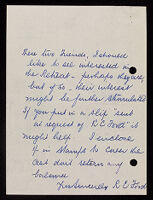 Here two friends, I should
like to see interested in
the Retreat - perhaps they are,
but if so - their interest
might be further stimulated
If you put in a slip "sent
at request of R. E. Ford" it
might help. I enclose
 in stamps to cover the
cost don't return any
balance
Yrs sincerely R E Ford